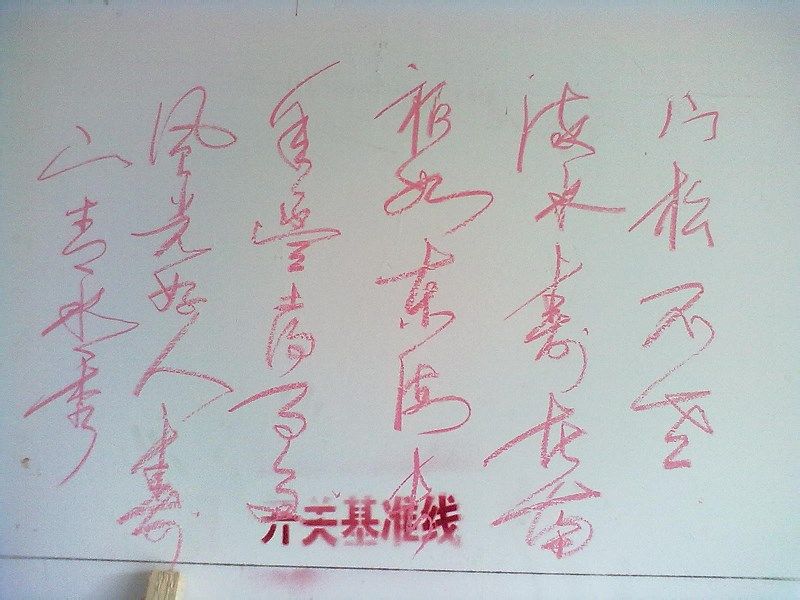 山青水秀
风光好人寿
年丰
福如东海长
流水寿比南
山松不老
开关基准线